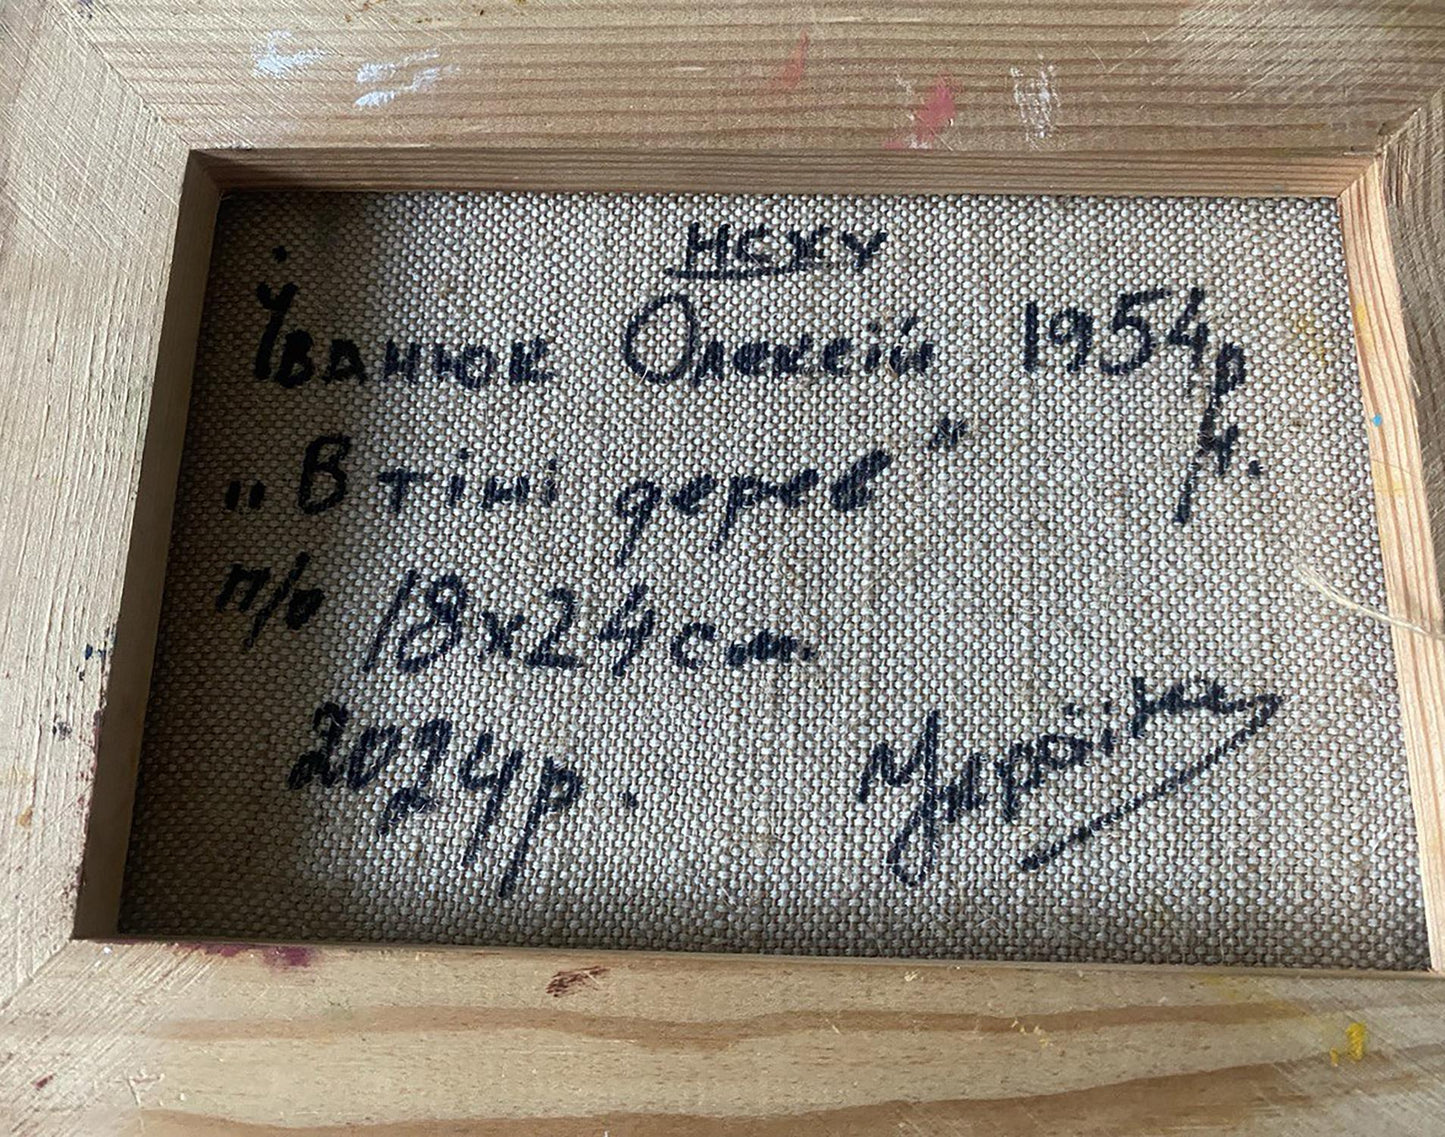 НСХУ
Іванюк Олексій 1954 р
н.
„В тіні дерев"
п/о 18х24 см.
2024 р.
Україна